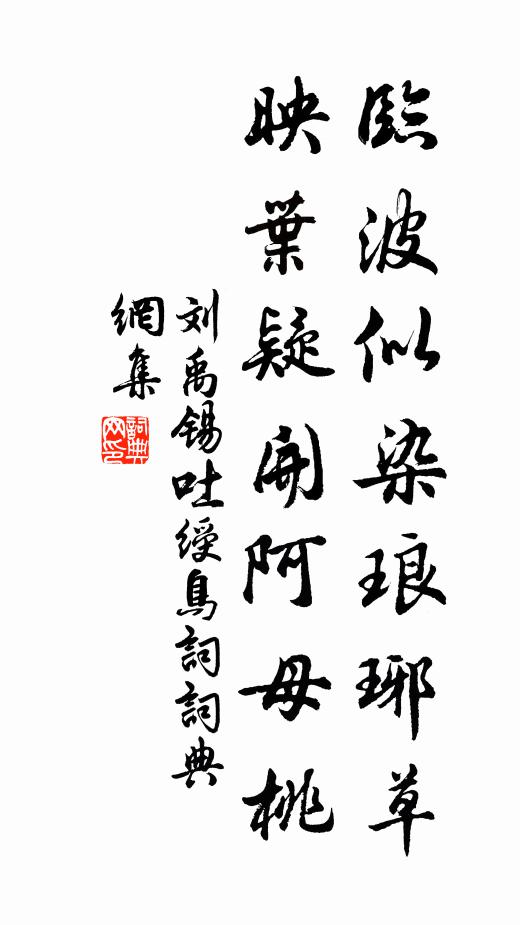 臨波似染琅琊草
映葉疑開阿母桃
刘禹锡吐綬鳥詞詞典
網集
詞典
网印